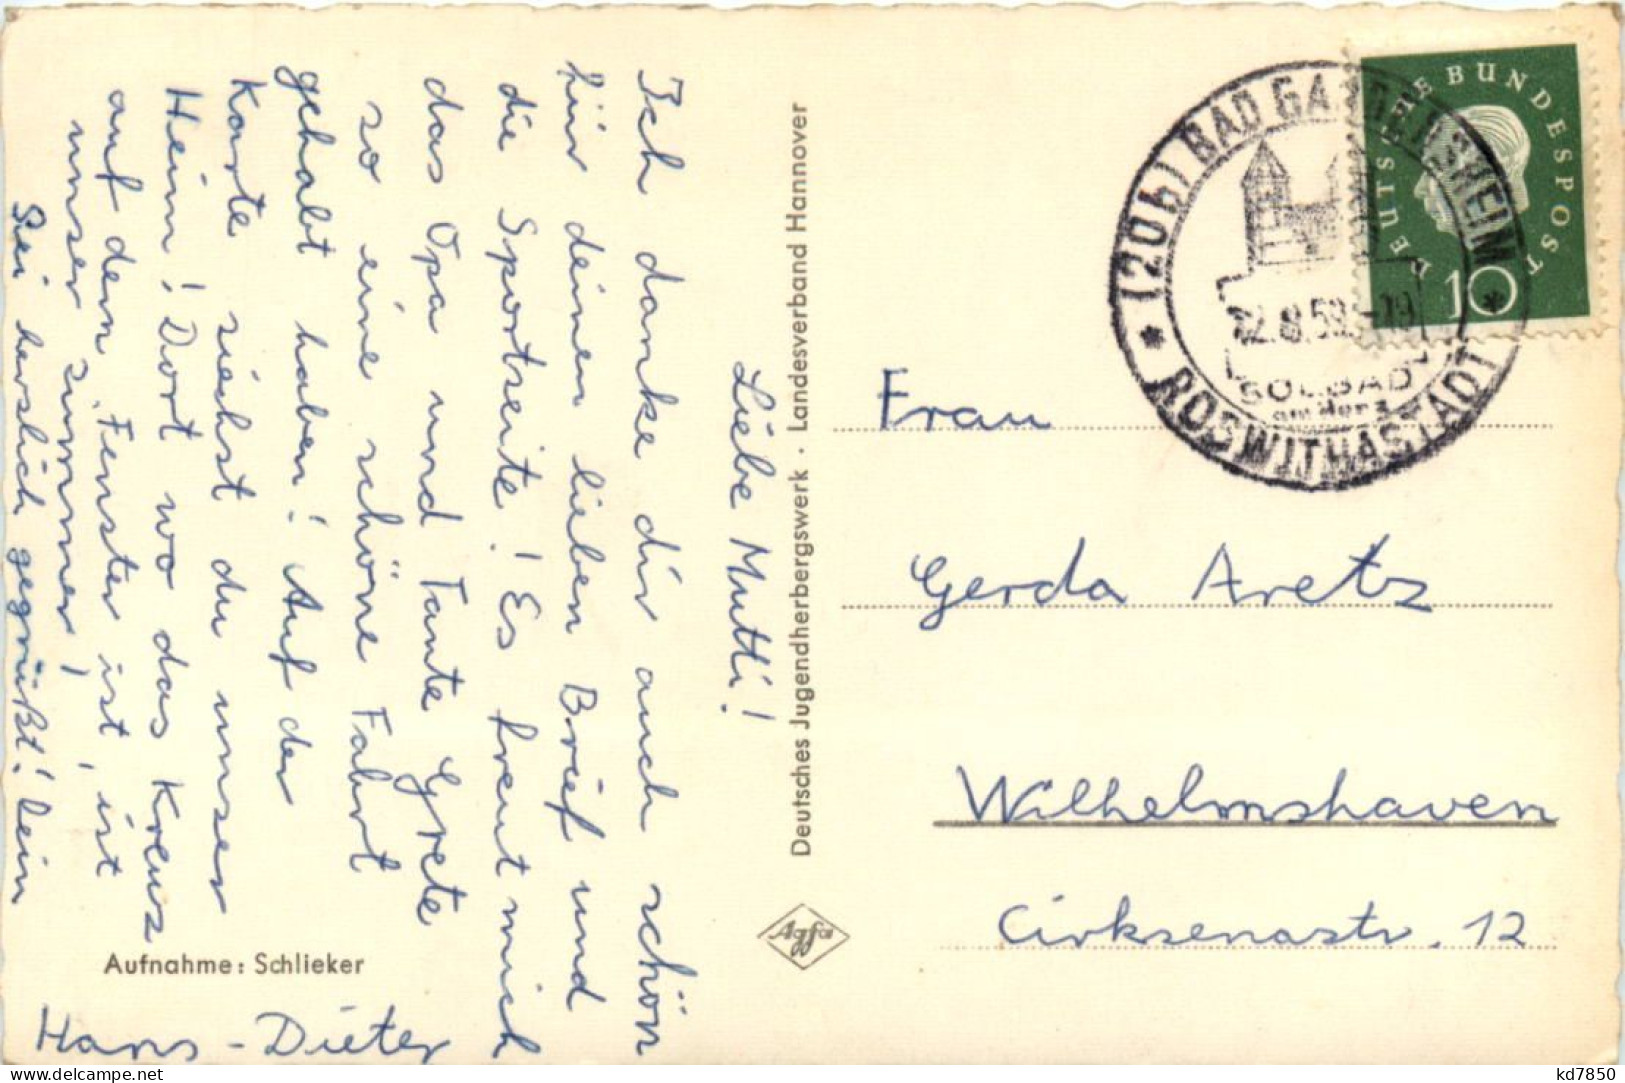 Liebe Mutti!
Ich danke dir auch schön
für deinen lieben Brief und
die Sportseite! Es freut mich
das Opa und Tante Grete
so eine schöne Fahrt
gehabt haben! Auf der
Karte siehst du unser
Heim! Dort wo das Kreuz
auf dem Fenster ist, ist
unser zimmer!
Sei herslich gegrüßt! Dein
Hans-Dieter
Aufnahme: Schlieker
Deutsches Jugendherbergswerk · Landesverband Hannover
Agfa
(20b) BAD GANDERSHEIM
ROSWITHASTADT
SOLBAD
DEUTSCHE BUNDESPOST
10
Frau
Gerda Aretz
Wilhelmshaven
Cirksenastr. 12
delcampe.net
kd7850